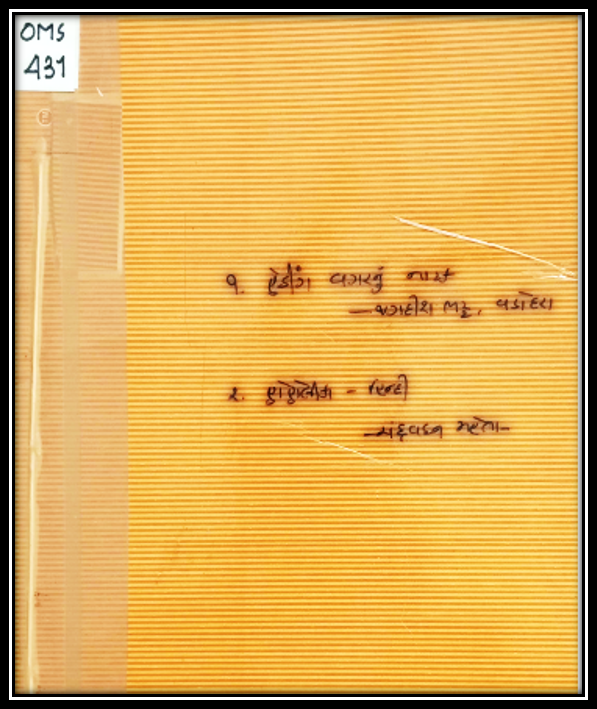 OMS
431
૧. હેડીંગ વગરનું નાટક
— જગદીશ ભટ્ટ, વડોદરા
૨. હોહોલીકા - હિન્દી
— ચંદ્રવદન મહેતા —